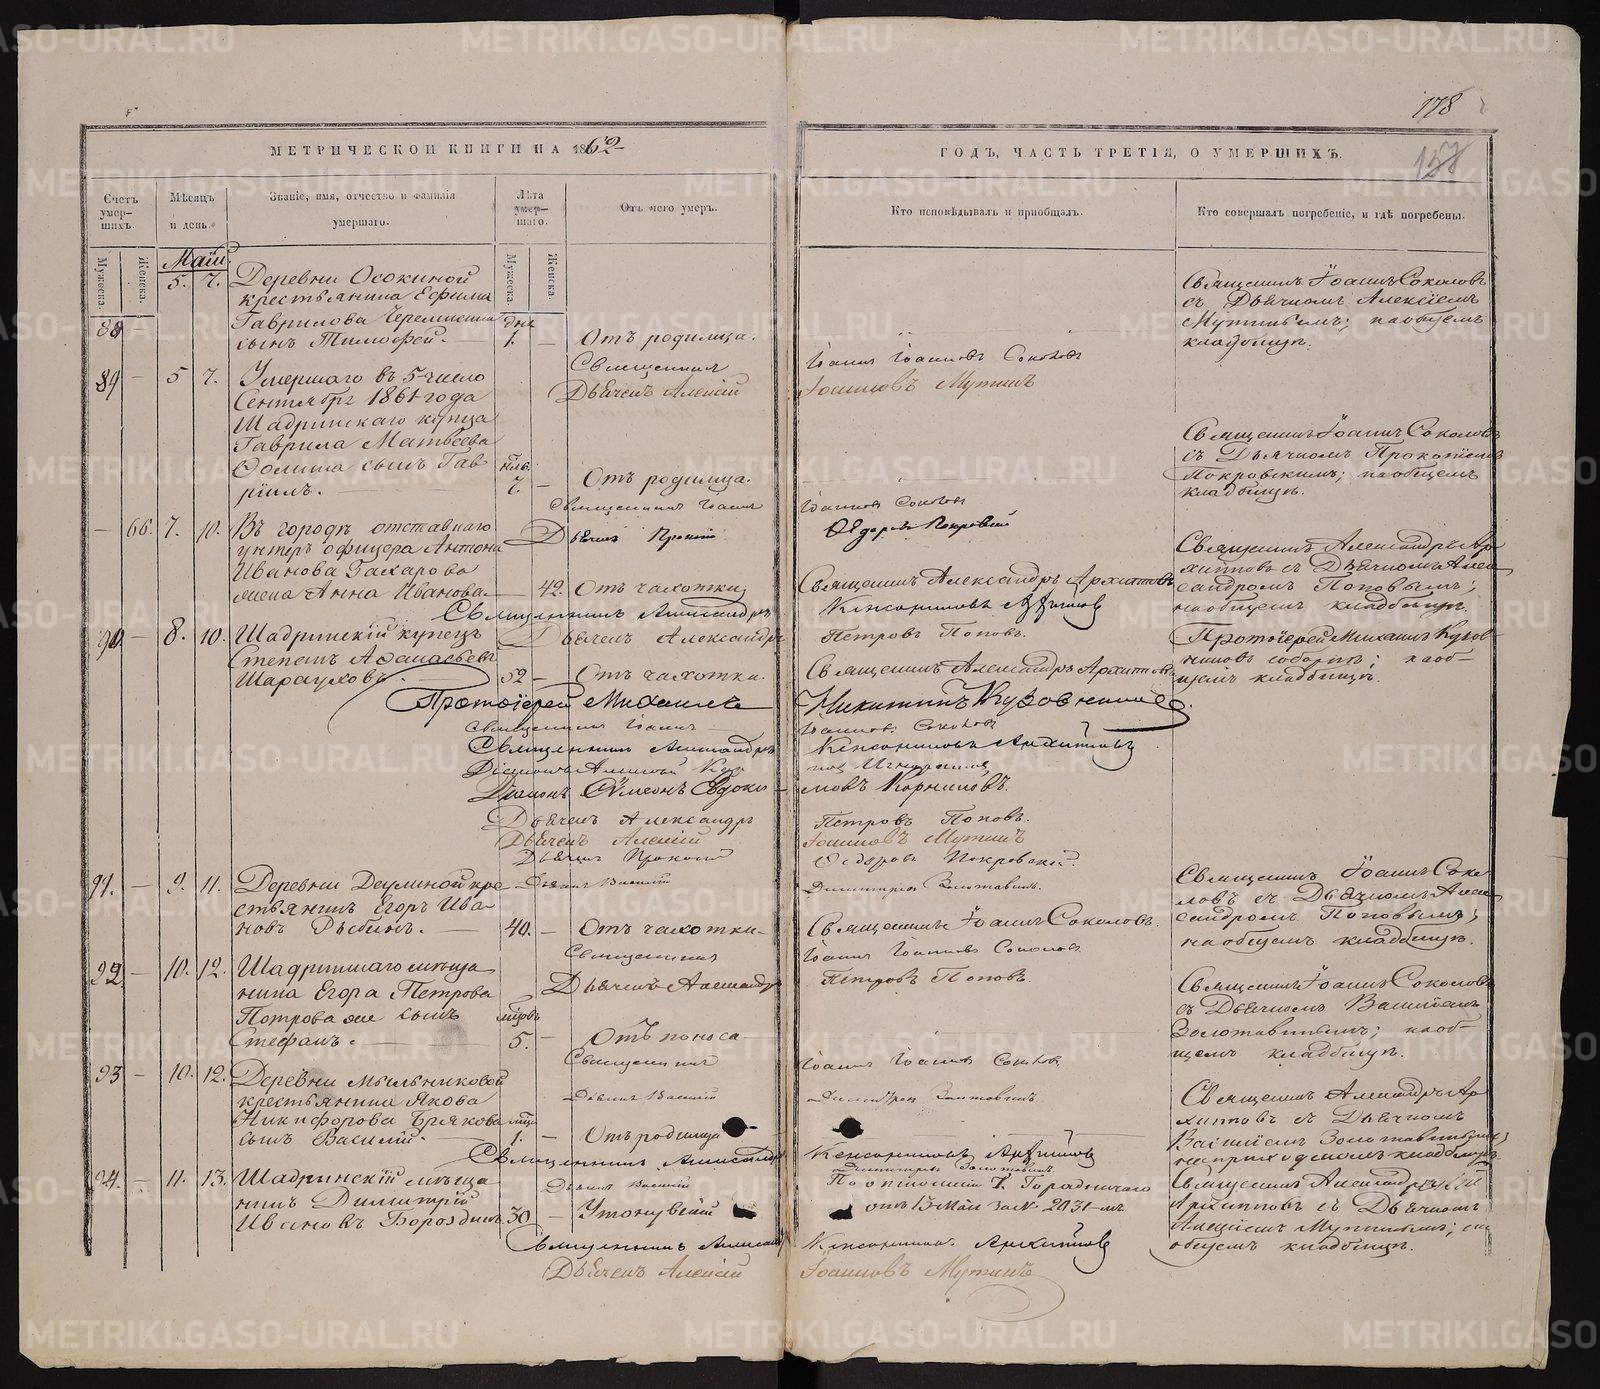 178
МЕТРИЧЕСКОЙ КНИГИ НА 1862
ГОДЪ, ЧАСТЬ ТРЕТІЯ, О УМЕРШИХЪ.
157
Счетъ умер-шихъ.
Мѣсяцъ и день.
Званіе, имя, отчество и фамилія умершаго.
Лѣта умер-шаго.
Отъ чего умеръ.
Кто исповѣдывалъ и пріобщалъ.
Кто совершалъ погребеніе, и гдѣ погребены.
Мужеска.
Женска.
Мужеска.
Женска.
Май.
88 — 5. 7. Деревни Осокиной
крестьянина Ефима
Гаврилова Черемисина
сынъ Тимофей. — дня 1. — Отъ родимца.
Священникъ Іоаннъ Соколовъ
съ Дьячкомъ Алексіемъ
Мутинымъ; на общемъ
кладбищѣ.
Священникъ Іоаннъ Іоанновъ Соколовъ
Дьячекъ Алексій Іоанновъ Мутинъ
89 — 5 7. Умершаго въ 5 число
Сентября 1861 года
Шадринскаго купца
Гаврила Матвѣева
Фомина сынъ Гав-
ріилъ. 7. — Отъ родимца.
Священникъ Іоаннъ Соколовъ
съ Дьячкомъ Прокопіемъ
Покровскимъ; на общемъ
кладбищѣ.
Священникъ Іоаннъ Іоанновъ Соколовъ
Дьячекъ Прокопій Ѳедоровъ Покровскій
— 66. 7. 10. Въ городѣ отставнаго
унтеръ офицера Антона
Иванова Захарова
жена Анна Иванова. — 42. Отъ чахотки
Священникъ Александръ Архиповъ
Священникъ Александръ Ар-
хиповъ съ Дьячкомъ Алек-
сандромъ Поповымъ;
на общемъ кладбищѣ.
Священникъ Александръ Ксенофонтовъ Архиповъ
Дьячекъ Александръ Петровъ Поповъ.
90. — 8. 10. Шадринскій купецъ
Степанъ Аѳанасьевъ
52 — Отъ чахотки.
Священникъ Александръ Архиповъ
Протоіерей Михаилъ
соборнѣ; на об-
щемъ кладбищѣ.
Протоіерей Михаилъ Никитинъ
Священникъ Іоаннъ Іоанновъ Соколовъ
Священникъ Александръ Архиповъ
Діаконъ Сѵмеонъ Евдоки- мовъ Корниловъ.
Дьячекъ Александръ Петровъ Поповъ.
Дьячекъ Алексій Іоанновъ Мутинъ
Дьячекъ Прокопій Ѳедоровъ Покровскій.
Дьячекъ Василій Димитріевъ Золотавинъ.
91. — 9. 11. Деревни Деулиной кре-
стьянинъ Егоръ Ива-
новъ Рыбинъ. — 40. — Отъ чахотки —
Священникъ Іоаннъ Соколовъ.
Священникъ Іоаннъ Соко-
ловъ съ Дьячкомъ Алек-
сандромъ Поповымъ;
на общемъ кладбищѣ.
Священникъ Іоаннъ Іоанновъ Соколовъ
Дьячекъ Александръ Петровъ Поповъ.
92. — 10. 12. Шадринскаго мѣща-
нина Егора Петрова
Петрова же сынъ
Стефанъ. — 5. — Отъ поноса —
Священникъ Іоаннъ Соколовъ
съ Дьячкомъ Василіемъ
Золотавинымъ; на об-
щемъ кладбищѣ.
Священникъ Іоаннъ Іоанновъ Соколовъ.
Дьячекъ Василій Димитріевъ Золотавинъ.
93 — 10. 12. Деревни Мыльниковой
крестьянина Якова
Никифорова Брякова
сынъ Василій. — 1. — Отъ родимца
Священникъ Александръ Ар-
хиповъ съ Дьячкомъ
Василіемъ Золотавинымъ;
на приходскомъ кладбищѣ.
Священникъ Александръ Архиповъ
Дьячекъ Василій Димитріевъ Золотавинъ.
94. — 11. 13. Шадринскій мѣща-
нинъ Димитрій
Ивановъ Бороздинъ. 30 — Утонувшій
По отношенію Г. Городничаго
отъ 13 Мая за № 2031-мъ
Священникъ Александръ
Архиповъ съ Дьячкомъ
Алексіемъ Мутинымъ; на
общемъ кладбищѣ.
Священникъ Александръ Архиповъ
Дьячекъ Алексій Іоанновъ Мутинъ
METRIKI.GASO-URAL.RU